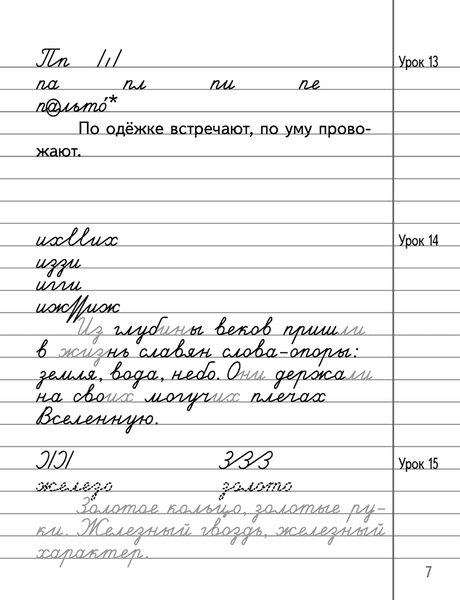 Пп Урок 13
па пл пи пе
п@льто́*
По одёжке встречают, по уму прово-
жают.
ихUUих Урок 14
иззи
игги
ижЛиж
Из глубины веков пришли
в жизнь славян слова-опоры:
земля, вода, небо. Они держали
на своих могучих плечах
Вселенную.
ЗЗЗ Урок 15
железо золото
Золотое кольцо, золотые ру-
ки. Железный гвоздь, железный
характер.
7